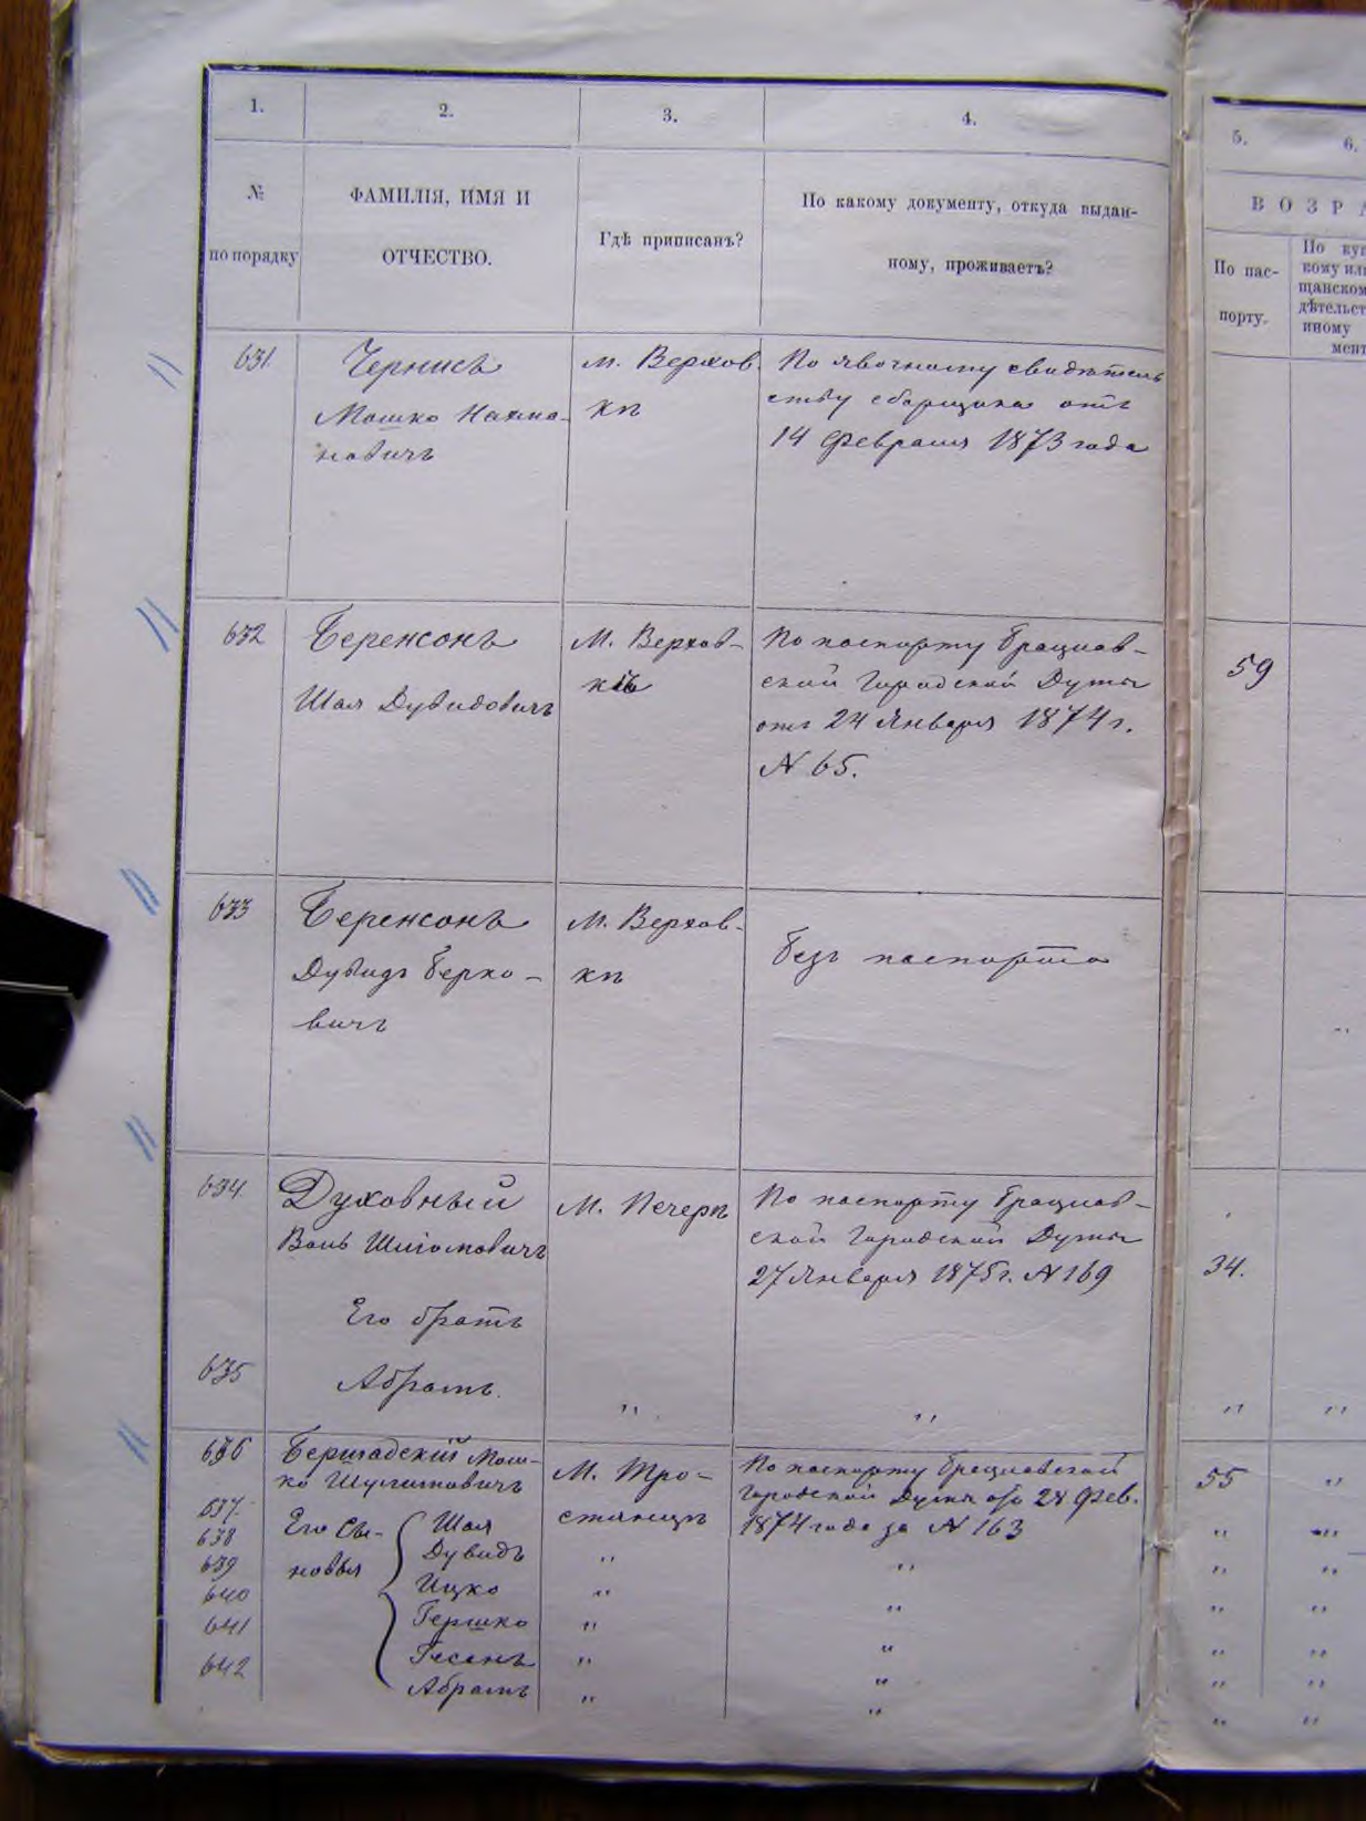 1.
2.
3.
4.
5.
6.
№
по порядку
ФАМИЛІЯ, ИМЯ И
ОТЧЕСТВО.
Гдѣ приписанъ?
По какому документу, откуда выдан-
ному, проживаетъ?
ВОЗРА
По пас-
порту.
По куп
кому или
щанском
дѣтельст
иному
мент
631.
Чернисъ
Мошко Нахма-
новичъ
м. Верхов.
кѣ
По явочному свидѣтель
ству сборщика отъ
14 Февраля 1873 года
632
Беренсонъ
Шая Дувидовичъ
М. Верхов-
кѣ
По паспорту Брацлав-
ской Городской Думы
отъ 24 Января 1874 г.
N 65.
59
633
Беренсонъ
Дувидъ Берко-
вичъ
М. Верхов-
кѣ
Безъ паспорта
"
634
Духовный
Волъ
М. Печерѣ
По паспорту Брацлав-
ской Городской Думы
27 Января 1875 г. N 169
34.
Его братъ
635
Абрамъ.
" " " "
636
Бершадскій Мош-
ко
М. Тро-
стянцѣ
По паспорту Брацлавской
Городской Думы отъ 28 Фев.
1874 года за N 163
55 "
637.
Его сы-
новья
Шая
" "
638
Дувидъ
" " " "
639
Ицко
" " " "
640
Гершко
" " " "
641
" " " "
642
Абрамъ
" " " "